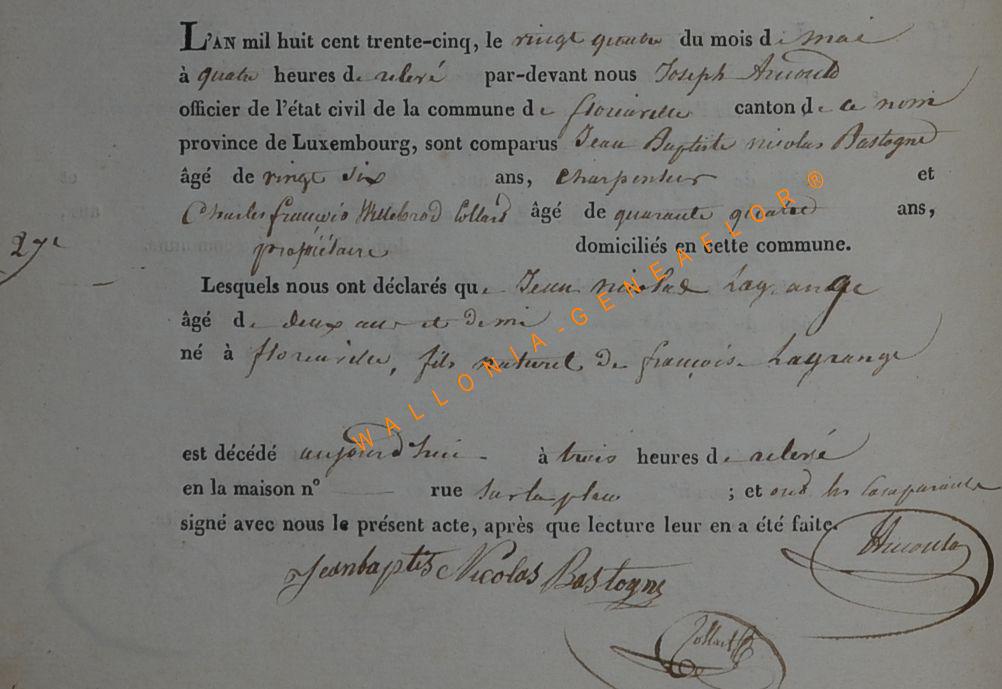 L'AN mil huit cent trente-cinq, le vingt quatre du mois de mai
à quatre heures de relevé par-devant nous Joseph Arnould
officier de l'état civil de la commune de florenville canton de ce nom
province de Luxembourg, sont comparus Jean Baptiste nicolas Bastogne
âgé de vingt six ans, charpentier et
Charles françois Willebrod Collard âgé de quarante quatre ans,
27e
propriétaire domiciliés en cette commune.
Lesquels nous ont déclarés que Jean nicolas Lagrange
âgé de deux ans et demi
né à florenville, fils naturel de françoise Lagrange
est décédé aujourd'hui à trois heures de relevé
en la maison n° rue sur la place ; et ont les comparants
signé avec nous le présent acte, après que lecture leur en a été faite.
Jeanbaptis Nicolas Bastogne
Arnould
Collard
WALLONIA-GENEAFLOR®